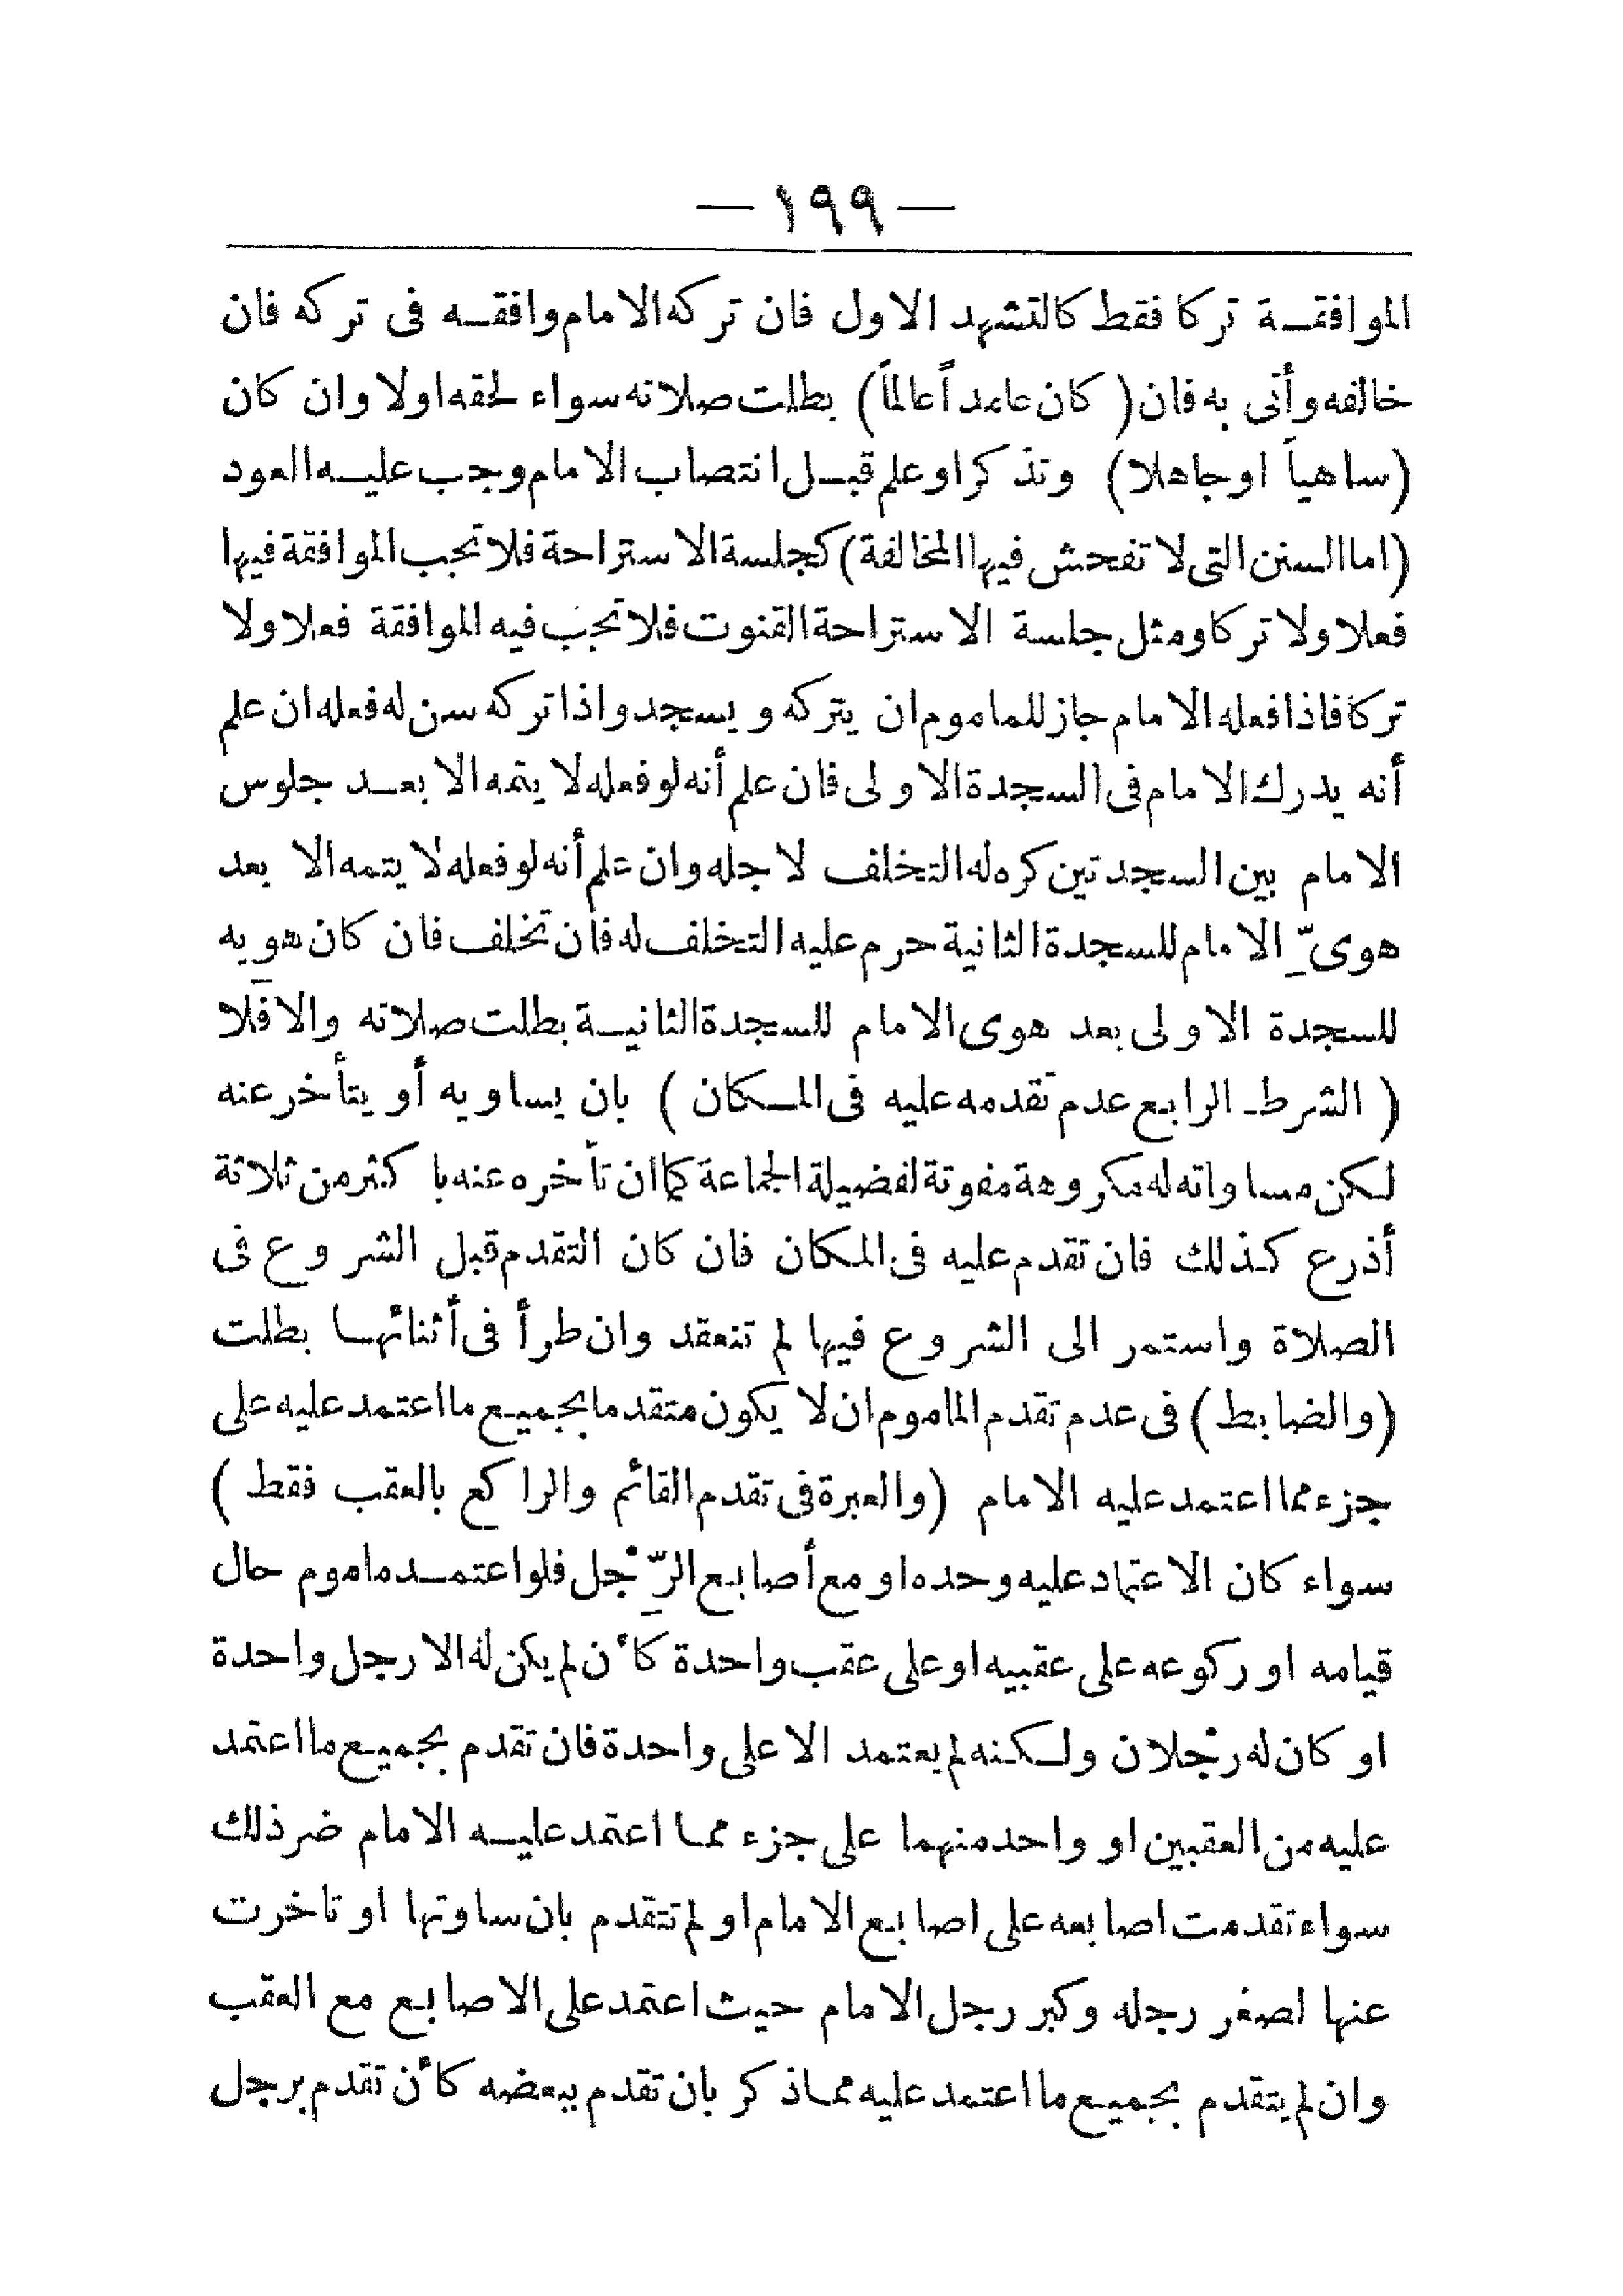 — ١٩٩ —
الموافقة تركا فقط كالتشهد الاول فان تركه الامام وافقه فى تركه فان
خالفه وأتى به فان ( كان عامداً عالماً ) بطلت صلاته سواء لحقه اولا وان كان
(ساهياً او جاهلا) وتذكر او علم قبل انتصاب الامام وجب عليه العود
(اما السنن التى لا تفحش فيها المخالفة) كجلسة الاستراحة فلا تجب الموافقة فيها
فعلا ولا تركا ومثل جلسة الاستراحة القنوت فلا تجب فيه الموافقة فعلا ولا
تركا فاذا فعله الامام جاز للماموم ان يتركه ويسجد واذا تركه سن له فعله ان علم
أنه يدرك الامام فى السجدة الاولى فان علم أنه لو فعله لا يتمه الا بعد جلوس
الامام بين السجدتين كره له التخلف لاجله وان علم أنه لو فعله لا يتمه الا بعد
هوىِّ الامام للسجدة الثانية حرم عليه التخلف له فان تخلف فان كان هويه
للسجدة الاولى بعد هوى الامام للسجدة الثانية بطلت صلاته والا فلا
( الشرط الرابع عدم تقدمه عليه فى المكان ) بان يساويه أو يتأخر عنه
لكن مساواته له مكروهة مفوتة لفضيلة الجماعة كما ان تأخره عنه باكثر من ثلاثة
أذرع كذلك فان تقدم عليه فى المكان فان كان التقدم قبل الشروع فى
الصلاة واستمر الى الشروع فيها لم تنعقد وان طرأ فى أثنائها بطلت
(والضابط) فى عدم تقدم الماموم ان لا يكون متقدما بجميع ما اعتمد عليه على
جزء مما اعتمد عليه الامام (والعبرة فى تقدم القائم والراكع بالعقب فقط )
سواء كان الاعتماد عليه وحده او مع أصابع الرِّجْل فلو اعتمد ماموم حال
قيامه او ركوعه على عقبيه او على عقب واحدة كأن لم يكن له الا رجل واحدة
او كان له رجْلان ولكنه لم يعتمد الا على واحدة فان تقدم بجميع ما اعتمد
عليه من العقبين او واحد منهما على جزء مما اعتمد عليه الامام ضر ذلك
سواء تقدمت اصابعه على اصابع الامام او لم تتقدم بان ساوتها او تاخرت
عنها لصغر رجله وكبر رجل الامام حيث اعتمد على الاصابع مع العقب
وان لم يتقدم بجميع ما اعتمد عليه مما ذكر بان تقدم ببعضه كأن تقدم برجل